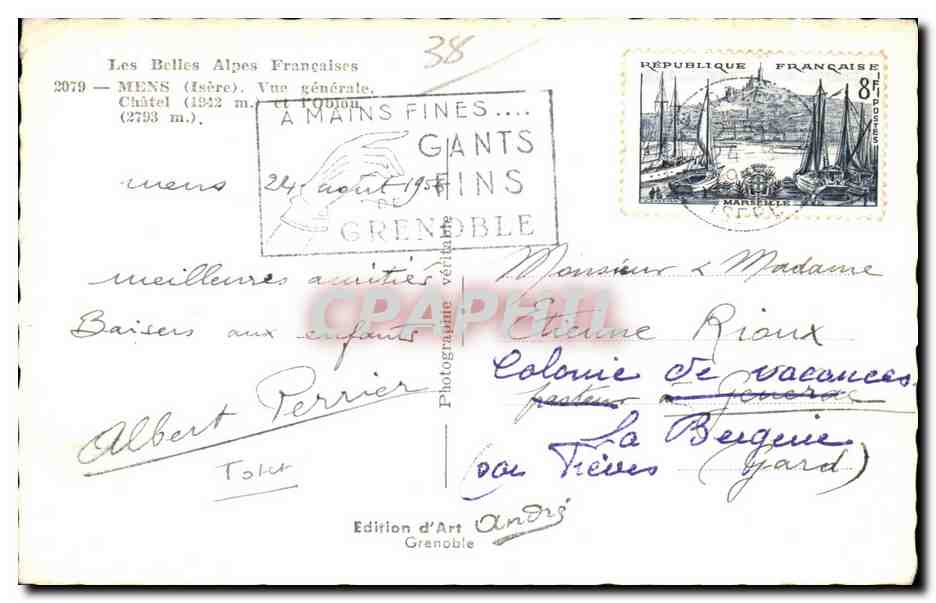 38
Les Belles Alpes Françaises
2079 — MENS (Isère). Vue générale.
Châtel (1942 m.) et l'Obiou
(2793 m.).
A MAINS FINES....
GANTS
FINS
DE
GRENOBLE
RÉPUBLIQUE FRANÇAISE
8F
POSTES
MARSEILLE
mens 24 août 1956
meilleures amitiés
Baisers aux enfants
Albert Perrier
Photographie véritable
CPAPHIL
Monsieur & Madame
Etienne Rioux
Colonie de vacances
pasteur
La Bergerie
par Trèves (Gard)
Edition d'Art André
Grenoble